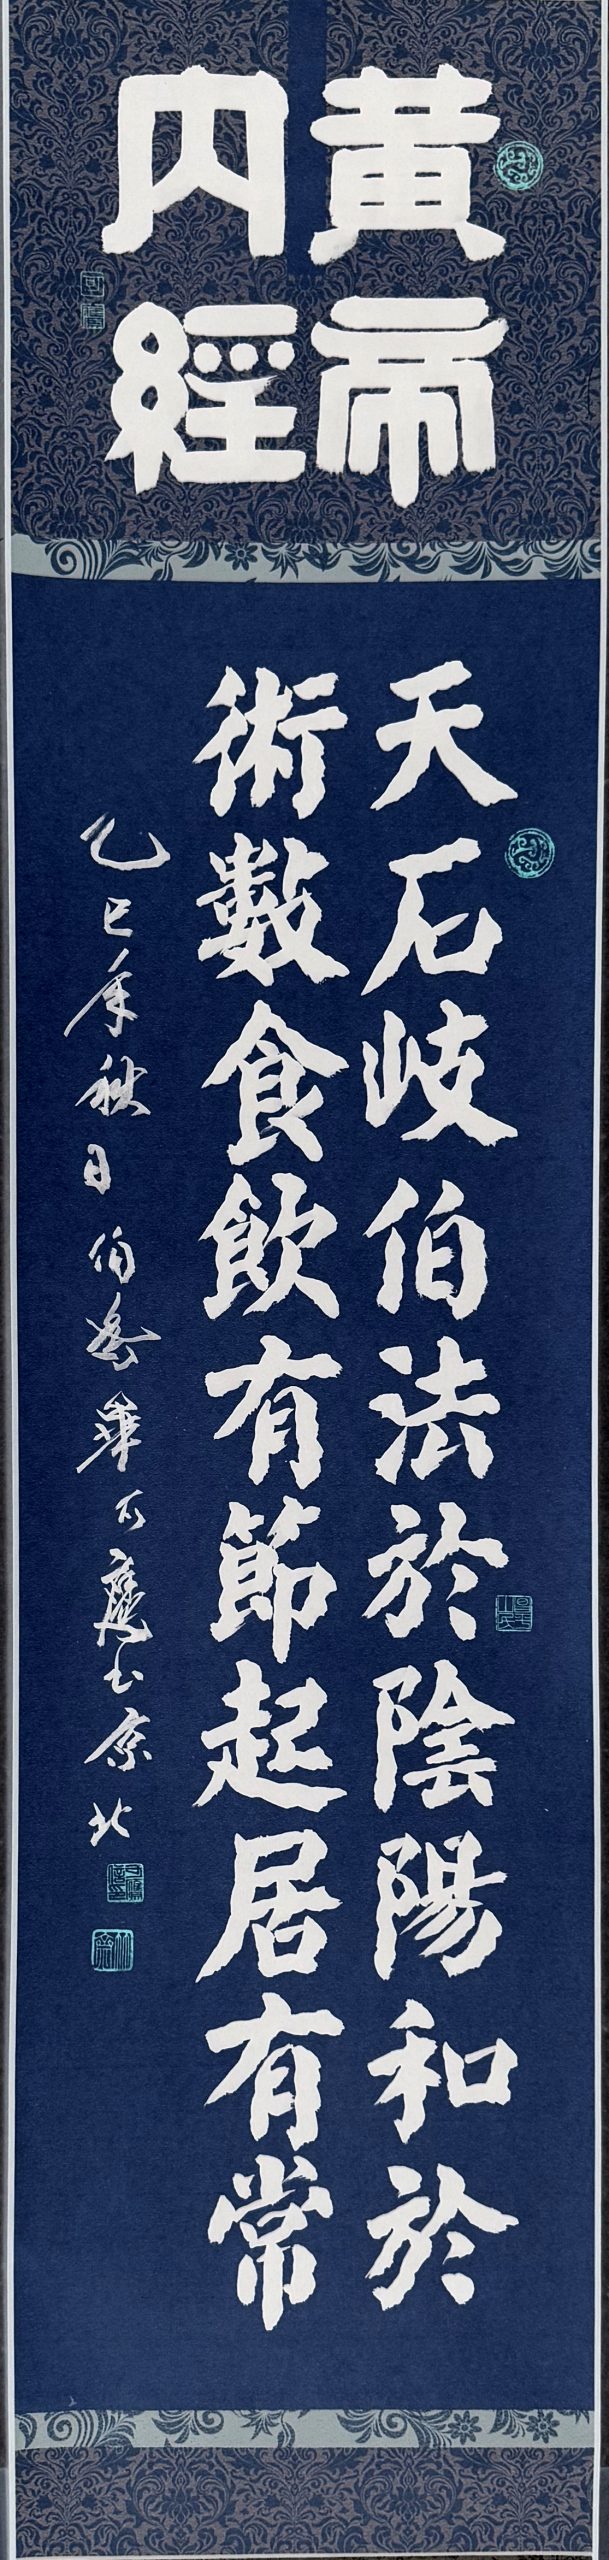 黄帝
内經
天石岐伯法於陰陽和於
術數食飲有節起居有常
乙巳年秋日伯 華石 書京北